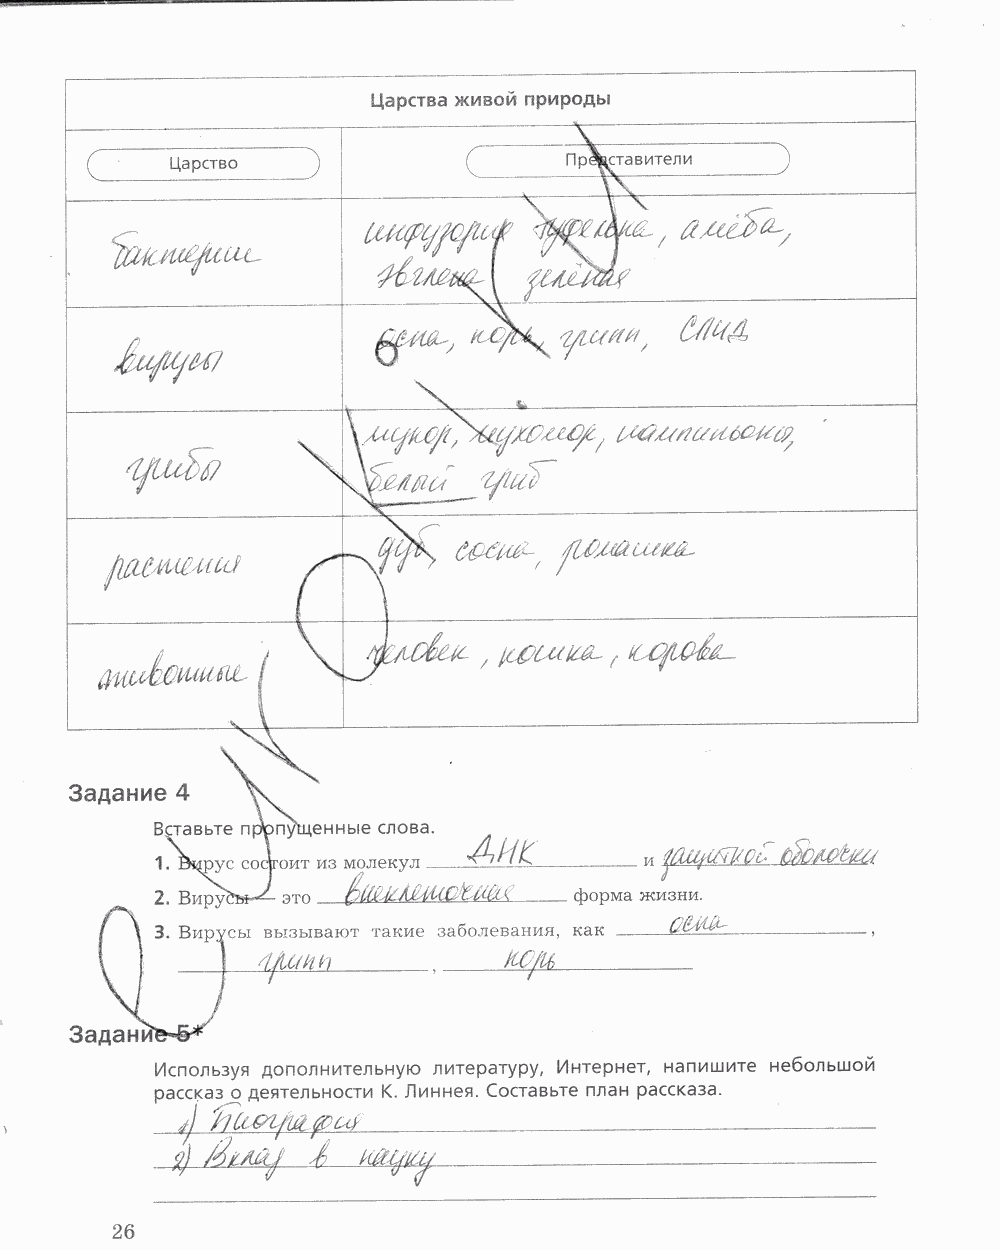 Царства живой природы
Царство Представители
бактерии инфузория туфелька, амёба,
эвглена зелёная
вирусы оспа, корь, грипп, СПИД
грибы мукор, мухомор, шампиньоны,
белый гриб
растения дуб, сосна, ромашка
животные человек, кошка, корова
Задание 4
Вставьте пропущенные слова.
1. Вирус состоит из молекул ДНК и защитной оболочки
2. Вирусы — это внеклеточная форма жизни.
3. Вирусы вызывают такие заболевания, как оспа,
грипп, корь
Задание 5*
Используя дополнительную литературу, Интернет, напишите небольшой
рассказ о деятельности К. Линнея. Составьте план рассказа.
1) Биография
2) Вклад в науку
26